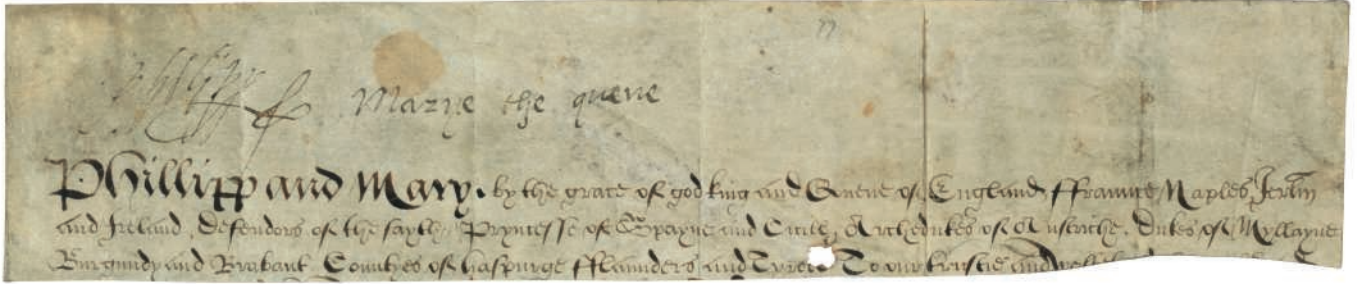 Philipp Marye the quene
Phillipp and Mary. by the grace of god king and Quene of England, ffraunce, Naples, Jerlm
and Ireland, defendors of the fayth, Pryncesse of Spayne and Cicill, Archedukes of Austriche, Dukes of Myllayne
Burgundy and Brabant Countyes of haspurge fflaunders and Tyroll To our trustie and